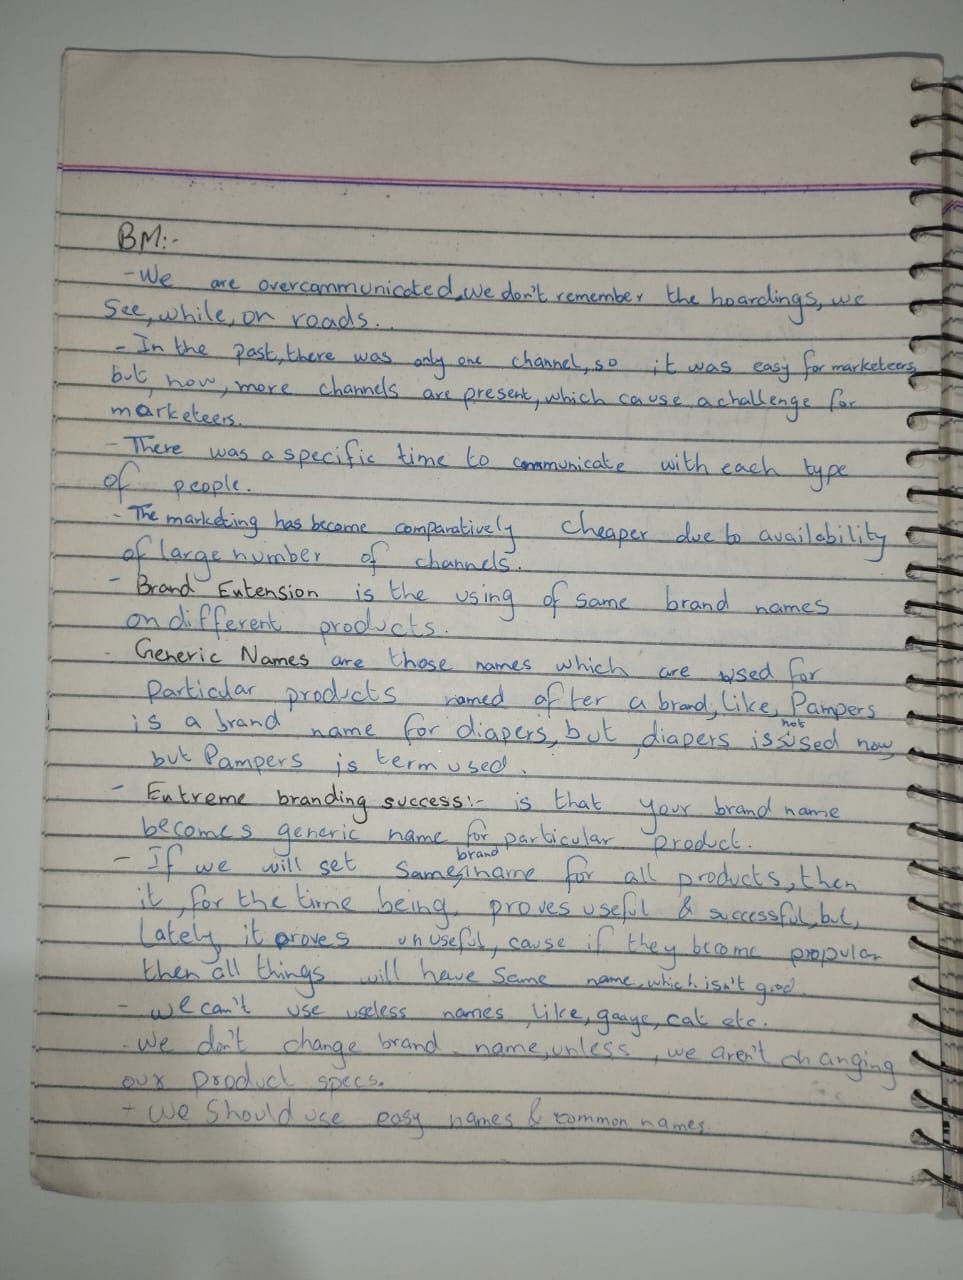 BM:-
- We are overcommunicated, we don't remember the hoardings, we
See, while, on roads...
- In the past, there was only one channel, so it was easy for marketeers,
but, now, more channels are present, which cause a challenge for
marketeers.
- There was a specific time to communicate with each type
of people.
- The marketing has become comparatively cheaper due to availability
of large number of channels.
- Brand Extension is the using of same brand names
on different products.
- Generic Names are those names which are used for
particular products named after a brand, like, Pampers
is a brand name for diapers, but, diapers is not used now,
but Pampers is term used.
- Extreme branding success:- is that your brand name
becomes generic name for particular product.
- If we will set same brand name for all products, then
it, for the time being, proves useful & successful, but,
Lately it proves unuseful, cause if they become propular
then all things will have same name, which isn't good.
- we can't use useless names, like, gaaye, cat etc.
- We don't change brand name, unless, we aren't changing
our product specs.
- we should use easy names & common names.